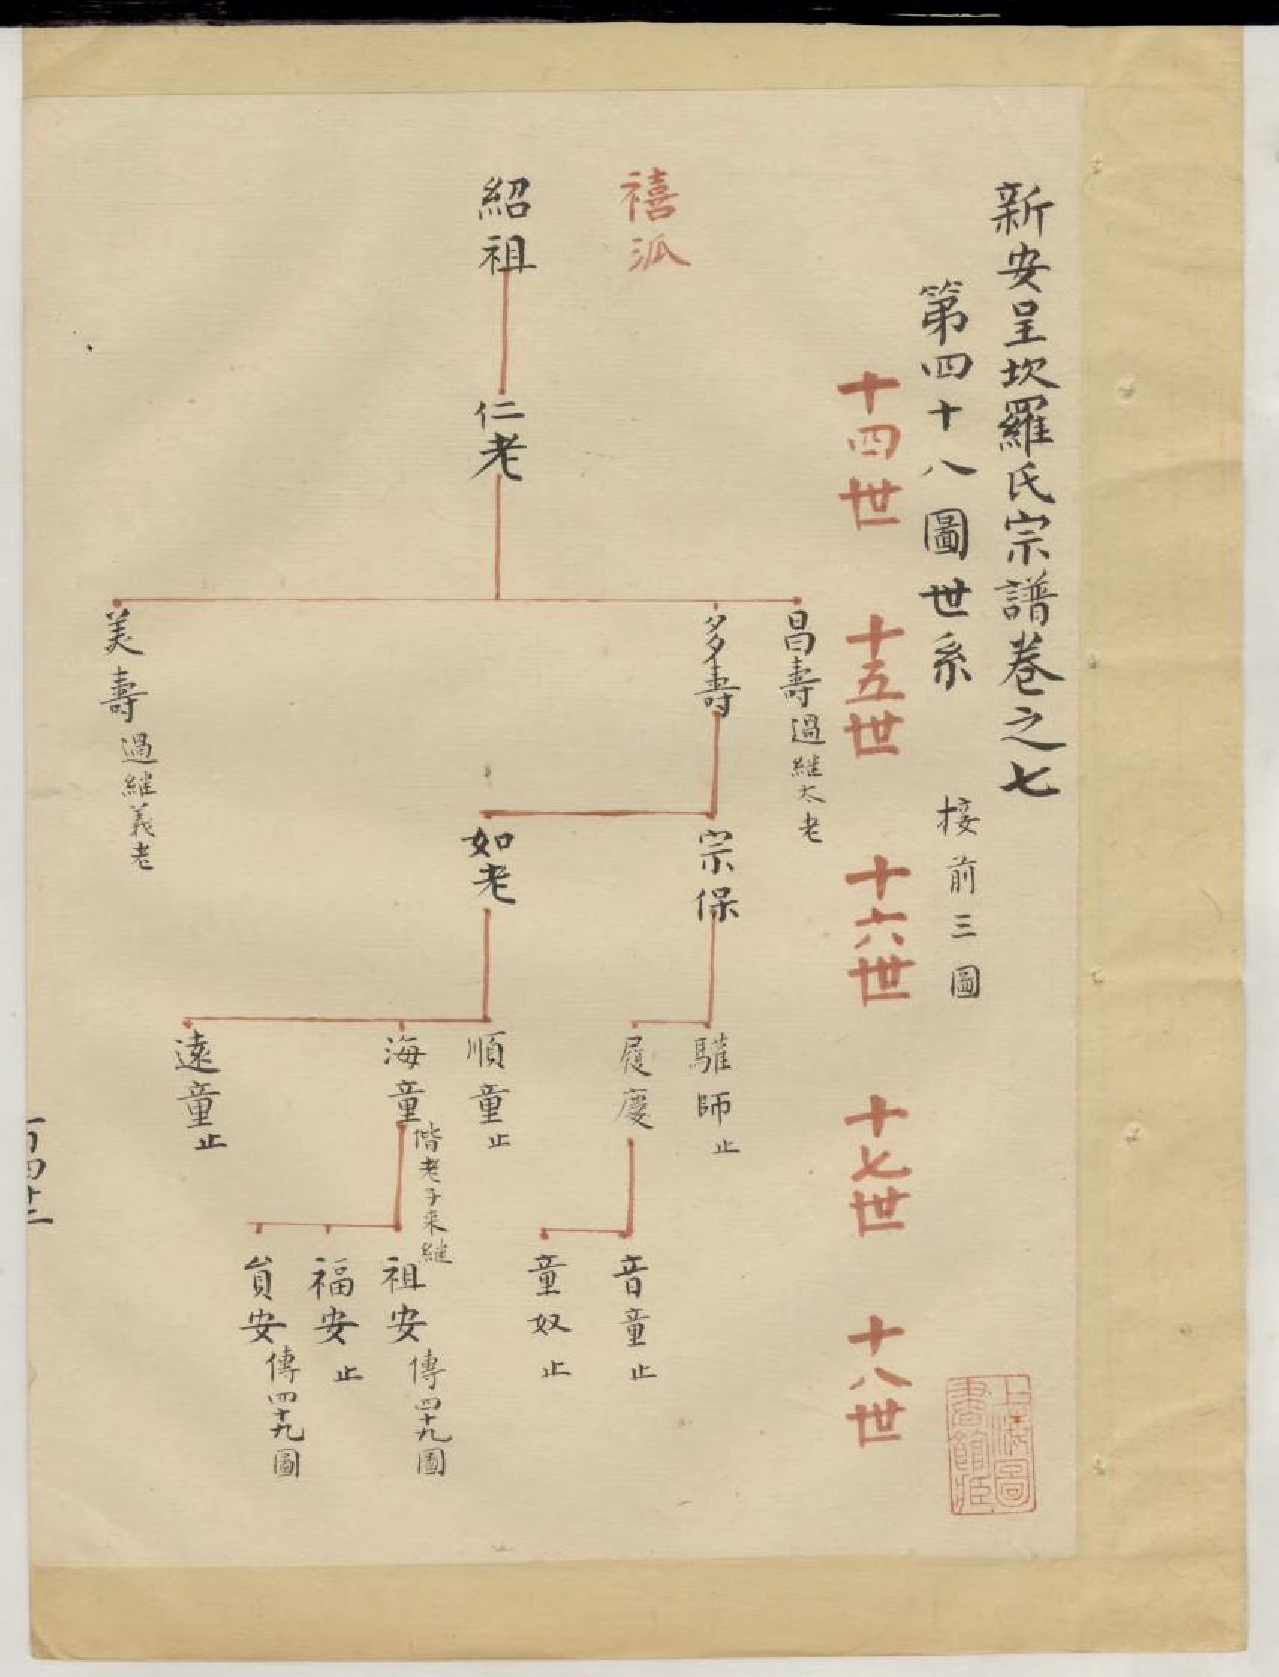 新安呈坎羅氏宗譜卷之七
第四十八圖世系 接前三圖
十四世
十五世
十六世
十七世
十八世
禧派
紹祖
仁老
昌壽 過繼太老
多壽
美壽 過繼義老
宗保
如老
驊師 止
履慶
順童 止
海童 偕老子來繼
遠童 止
音童 止
童奴 止
祖安 傳四十九圖
福安 止
貟安 傳四十九圖
上海圖書館藏